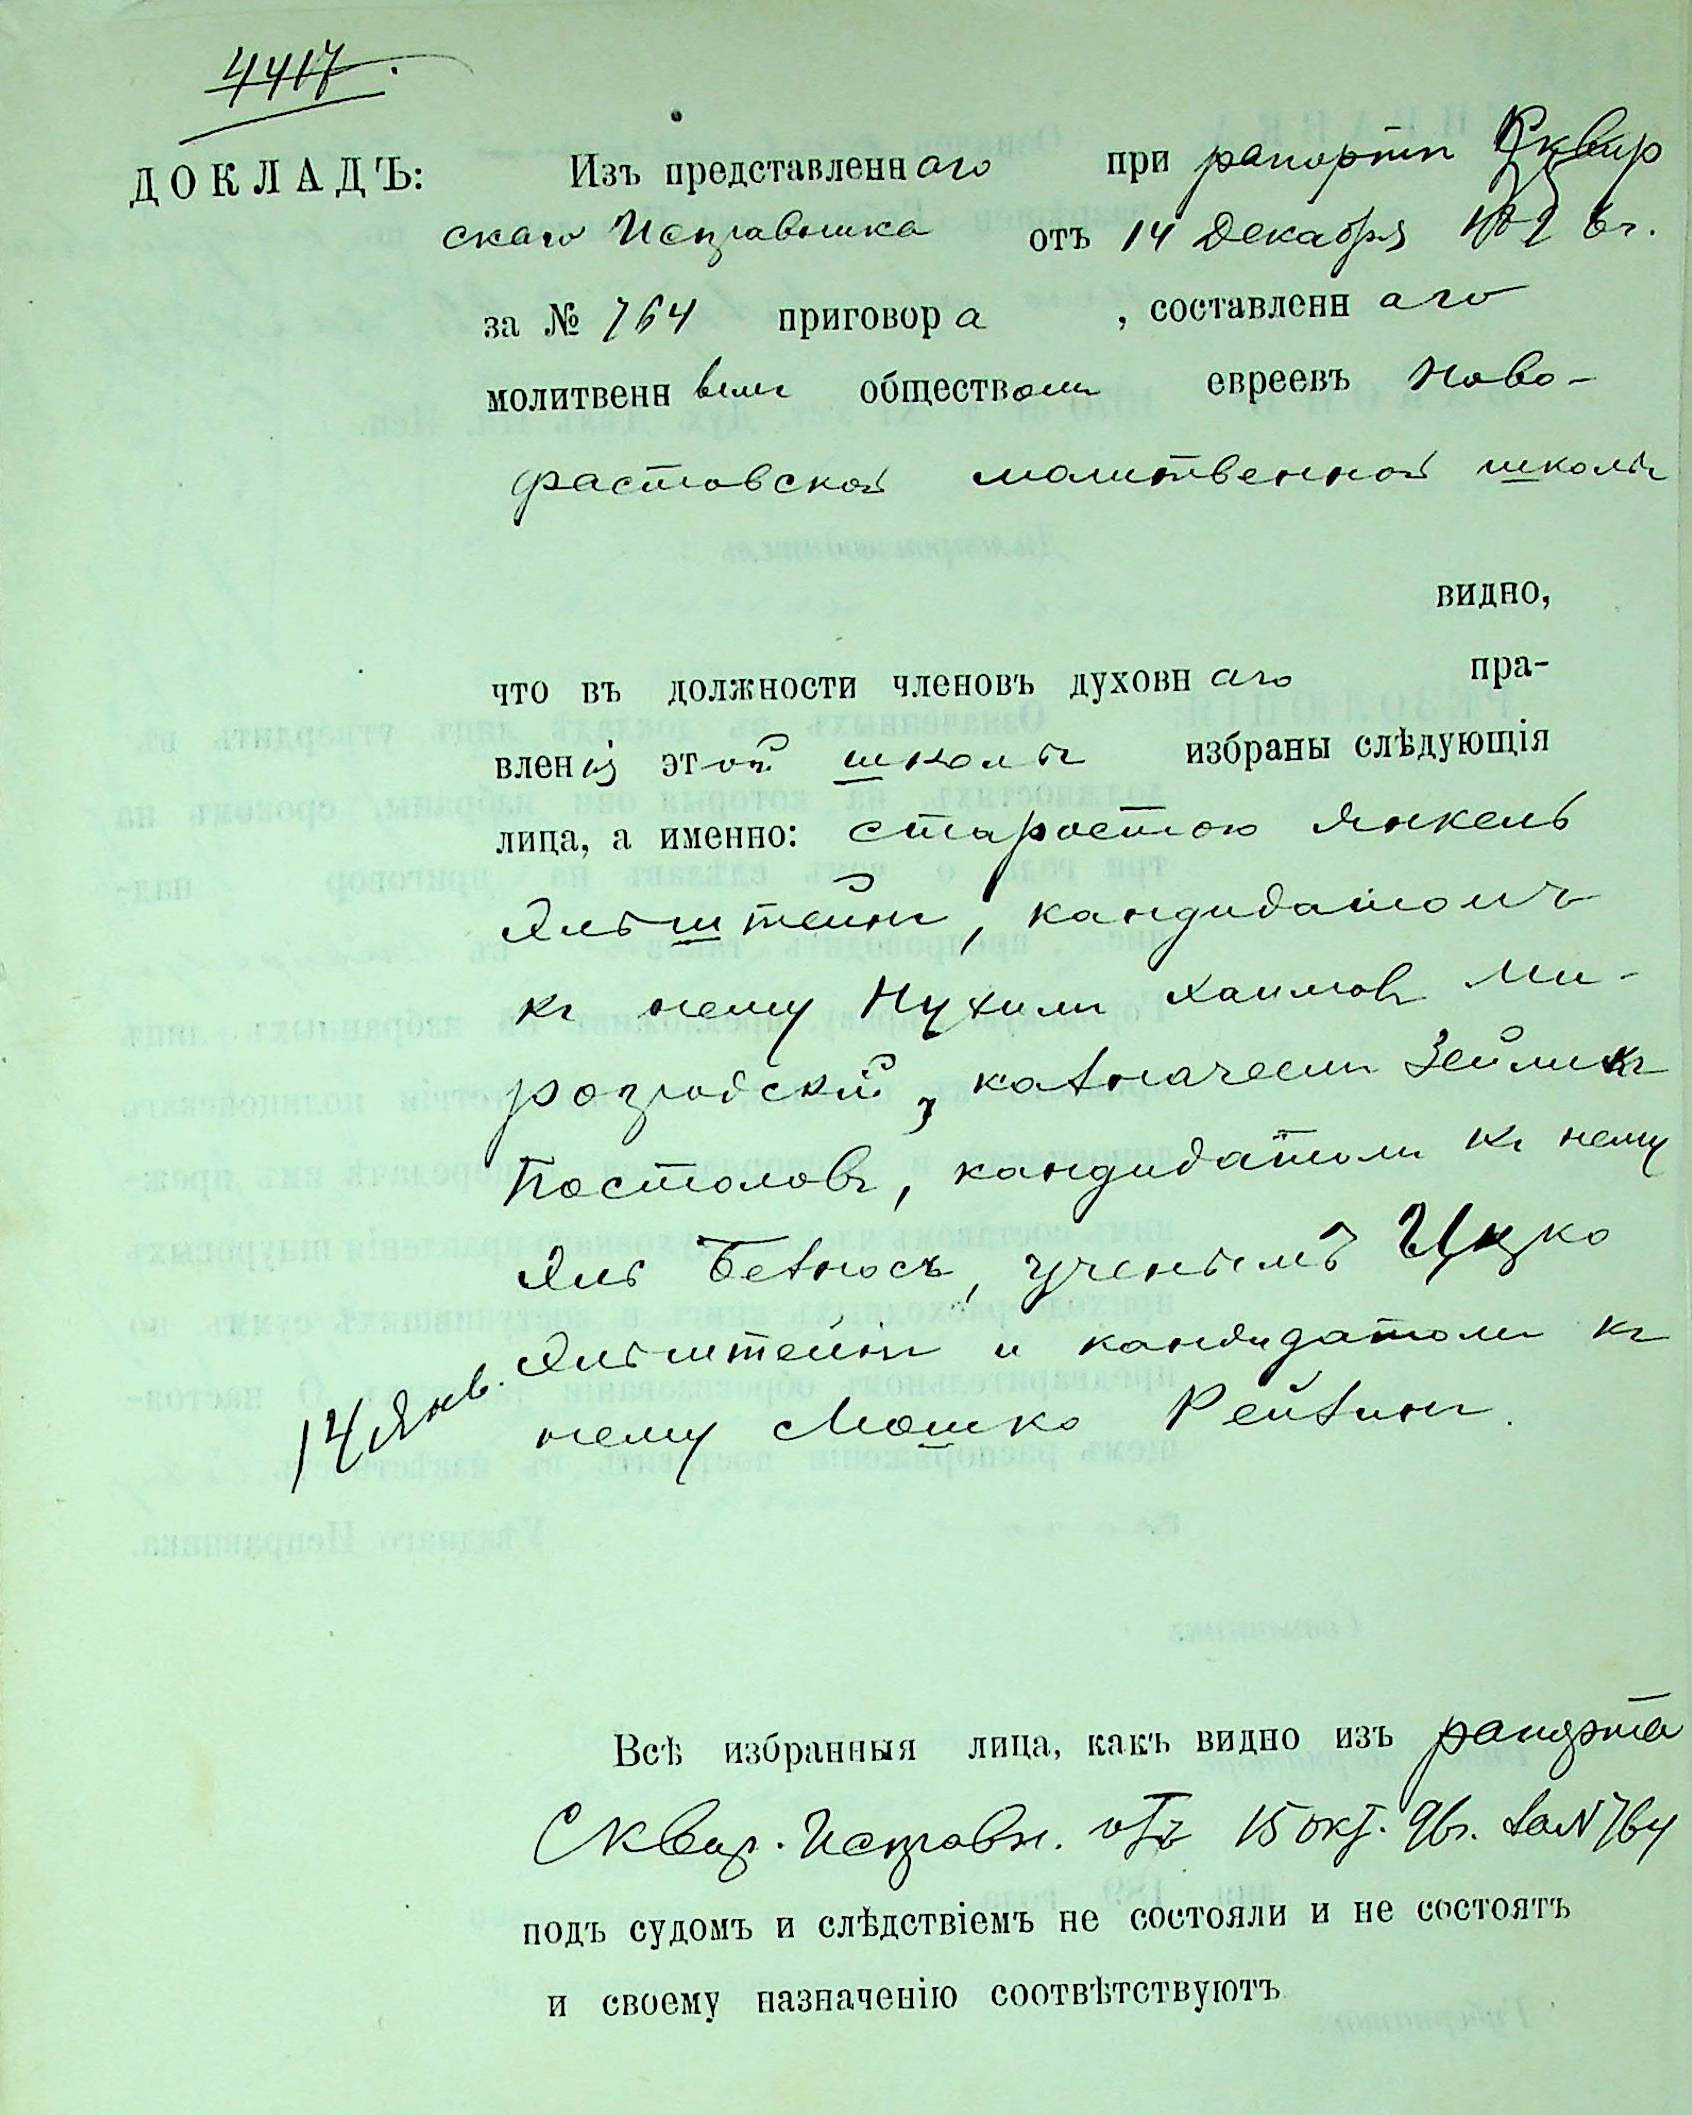 4417.
ДОКЛАДЪ: Изъ представленнаго при рапортѣ Сквир
скаго Исправника отъ 14 Декабря 1896 г.
за № 764 приговора, составленнаго
молитвеннымъ обществомъ евреевъ Ново-
фастовской молитвенной школы
видно,
что въ должности членовъ духовнаго пра-
вленія этой школы избраны слѣдующія
лица, а именно: старостою Янкель
Альштейнъ, кандидатомъ
къ нему Нухимъ Хаимовъ Ми-
розродскій, казначеемъ Зейликъ
Постоловъ, кандидатомъ къ нему
Эль Безносъ, ученымъ Ицко
Альштейнъ и кандидатомъ къ
14 Янв. нему Мошко Рейзинъ.
Всѣ избранныя лица, какъ видно изъ рапорта
Сквир. Исправн. отъ 15 окт. 96 г. за № 764
подъ судомъ и слѣдствіемъ не состояли и не состоятъ
и своему назначенію соотвѣтствуютъ